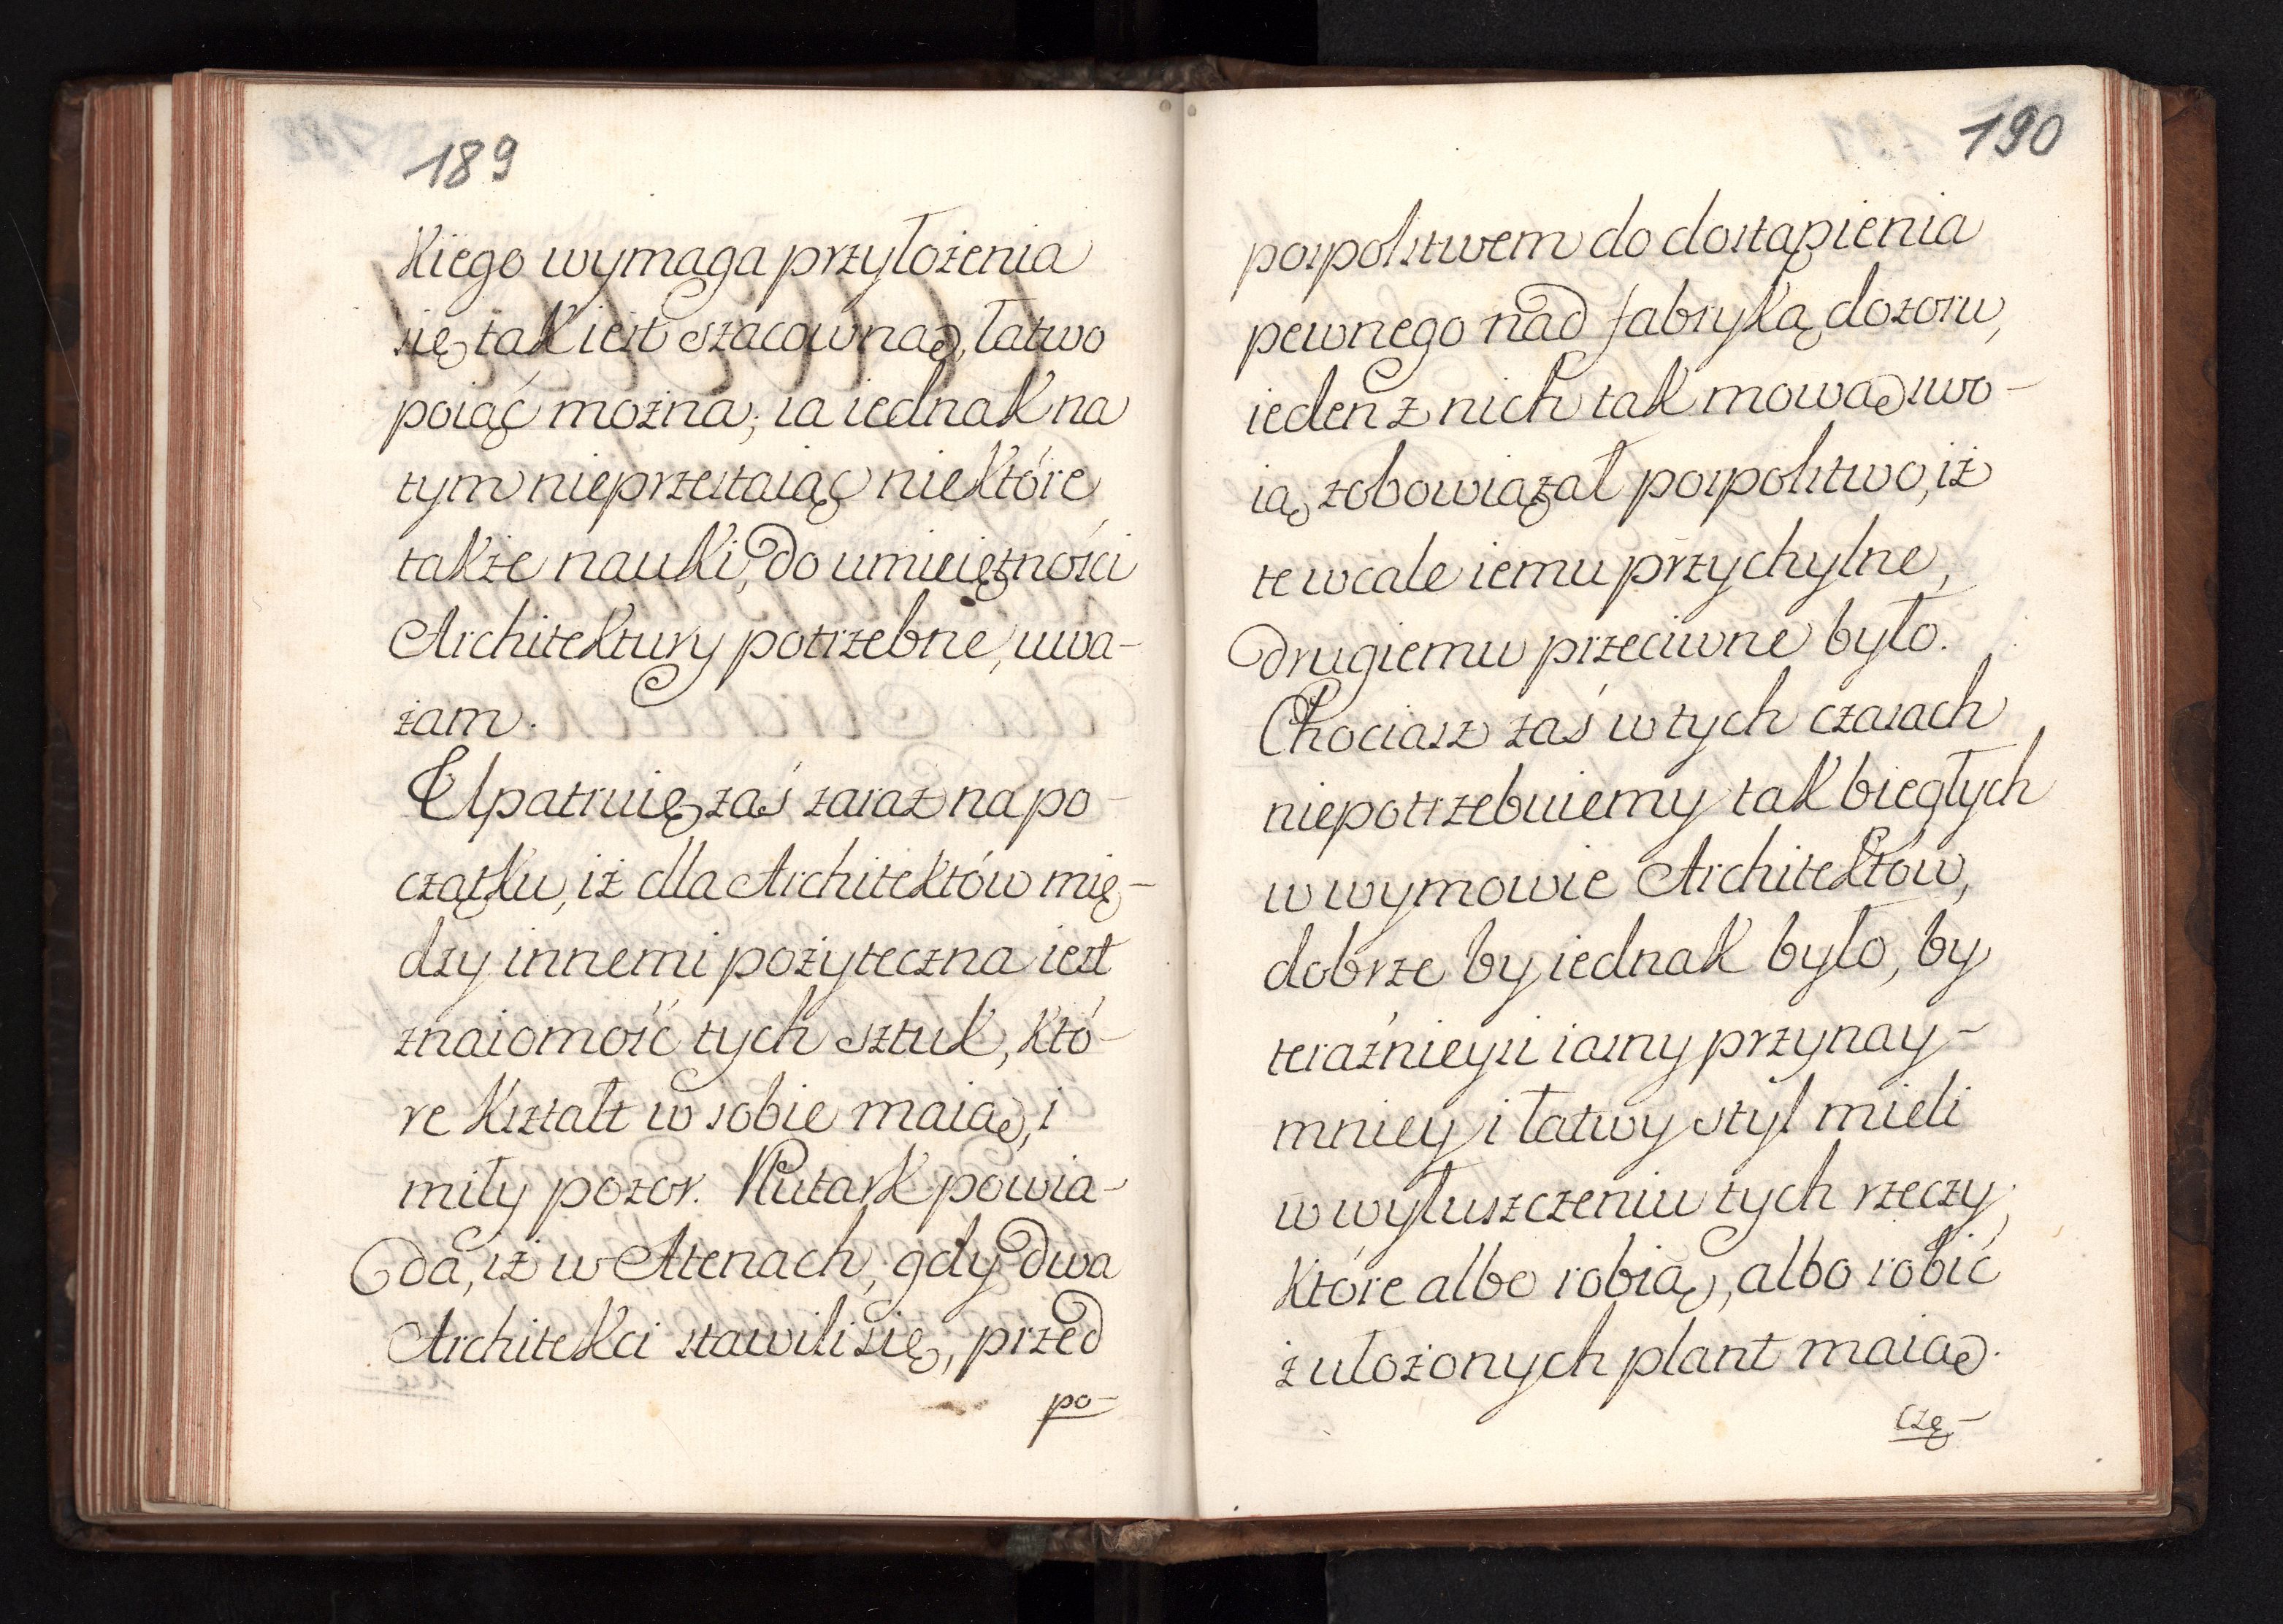 189
kiego wymaga przyłożenia
się, tak iest szacowną, łatwo
poiąć można; ia iednak na
tym nieprzestaiąc niektóre
także nauki, do umieiętności
Architektury potrzebne, uwa-
żam.
Upatruię zaś zaraz na po-
czątku, iż dla Architektów mię-
dzy innemi pożyteczna iest
znaiomość tych sztuk, któ-
re kształt w sobie maią, i
miły pozor. Plutark powia-
da, iż w Atenach, gdy dwa
Architekci stawili się, przed
po-
190
pospolstwem do dostąpienia
pewnego nad fabryką dozoru,
ieden z nich tak mową swo-
ią zobowiązał pospolstwo, iż
te wcale iemu przychylne,
drugiemu przeciwne było.
Chociasz zaś w tych czasach
niepotrzebuiemy tak biegłych
w wymowie Architektów,
dobrze by iednak było, by
teraźnieysi iasny przynay-
mniey i łatwy styl mieli
w wyłuszczeniu tych rzeczy,
które albo robią, albo robić
z ułożonych plant maią.
czę-